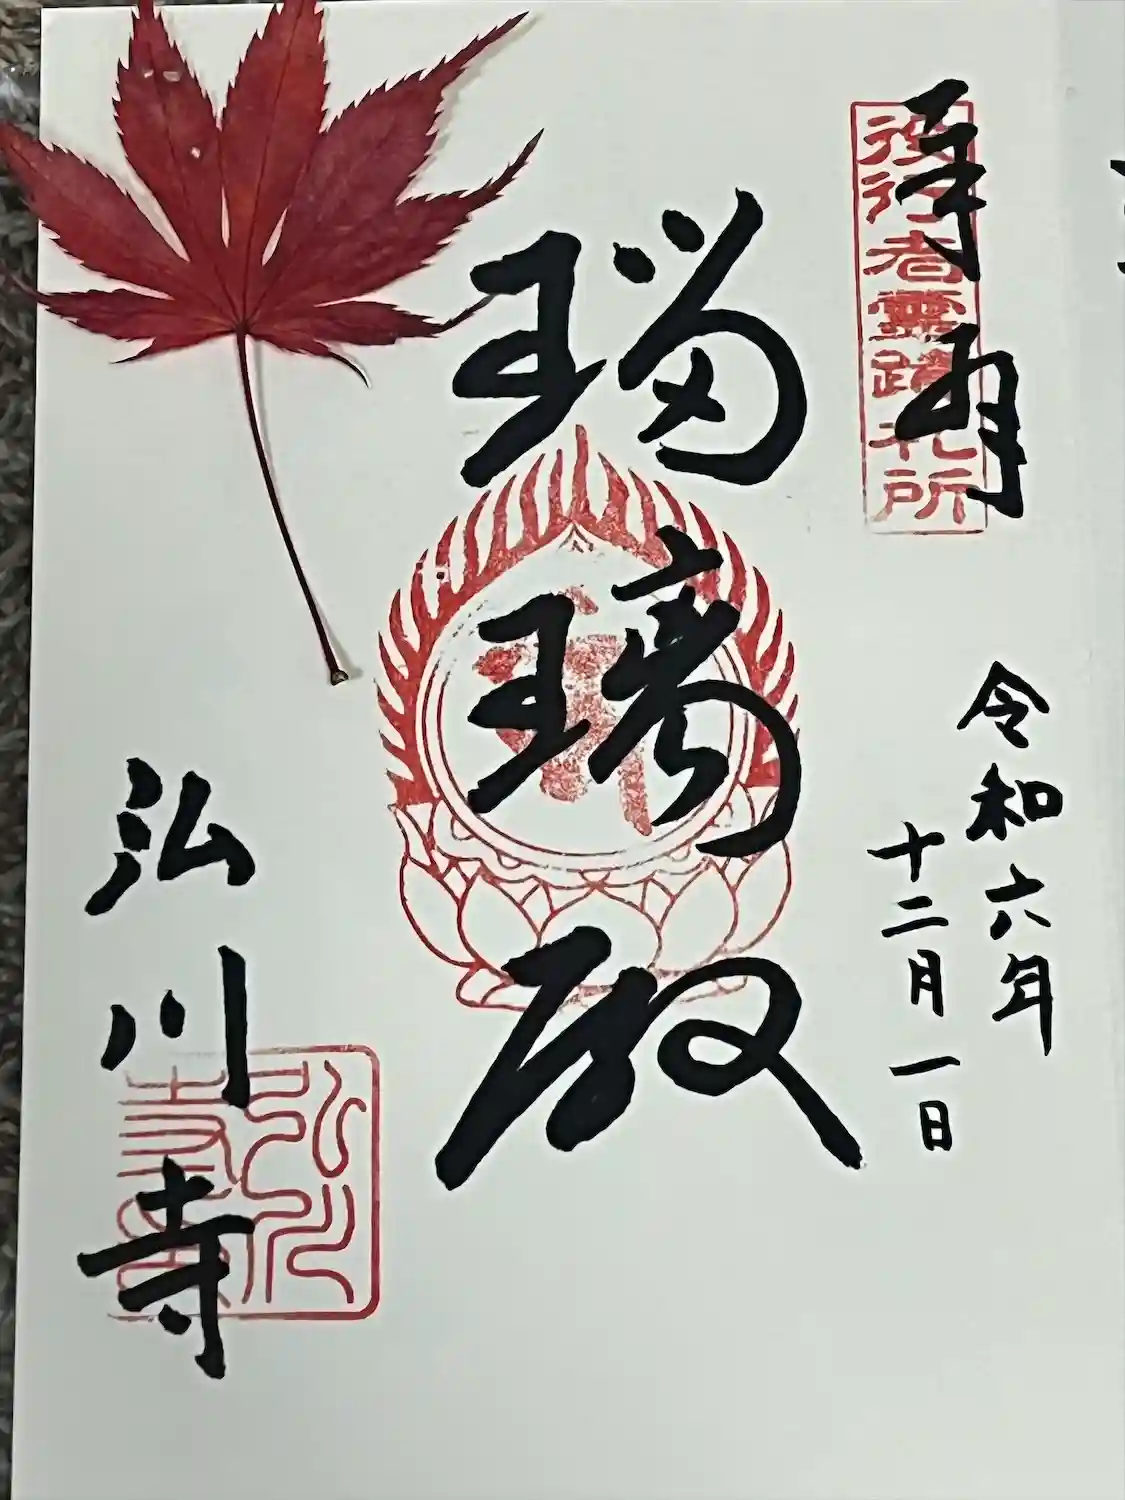 拝
役行者霊蹟札所
令和六年
十二月一日
瑠璃殿
弘川寺